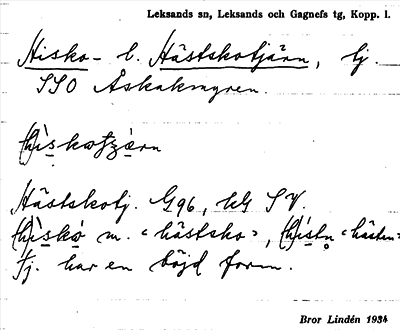 Leksands sn, Leksands och Gagnefs tg, Kopp. l.
Hisko- l. Hästskotjärn, tj.
SSO Åskakmyren.
(h)ìskotjæ̀rn
Hästskotj. G96, kG SV.
(h)ìskò m. "hästsko", (h)ístn "hästen"
Tj. har en böjd form.
Bror Lindén 1934